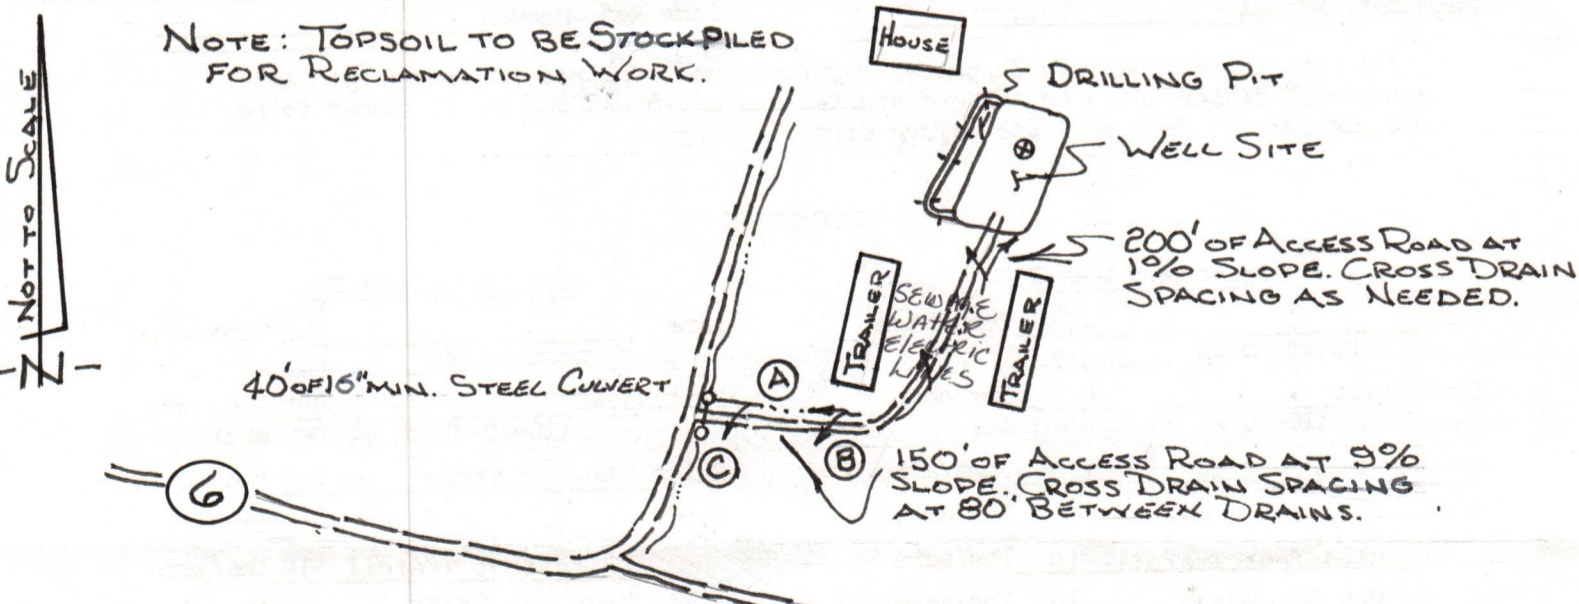 NOTE: TOPSOIL TO BE STOCKPILED
FOR RECLAMATION WORK.
HOUSE
DRILLING PIT
WELL SITE
200' OF ACCESS ROAD AT
1% SLOPE. CROSS DRAIN
SPACING AS NEEDED.
NOT TO SCALE
N
TRAILER
SEWAGE
WATER
ELECTRIC
LINES
TRAILER
40' OF 16" MIN. STEEL CULVERT
A
B
C
150' OF ACCESS ROAD AT 9%
SLOPE. CROSS DRAIN SPACING
AT 80' BETWEEN DRAINS.
6